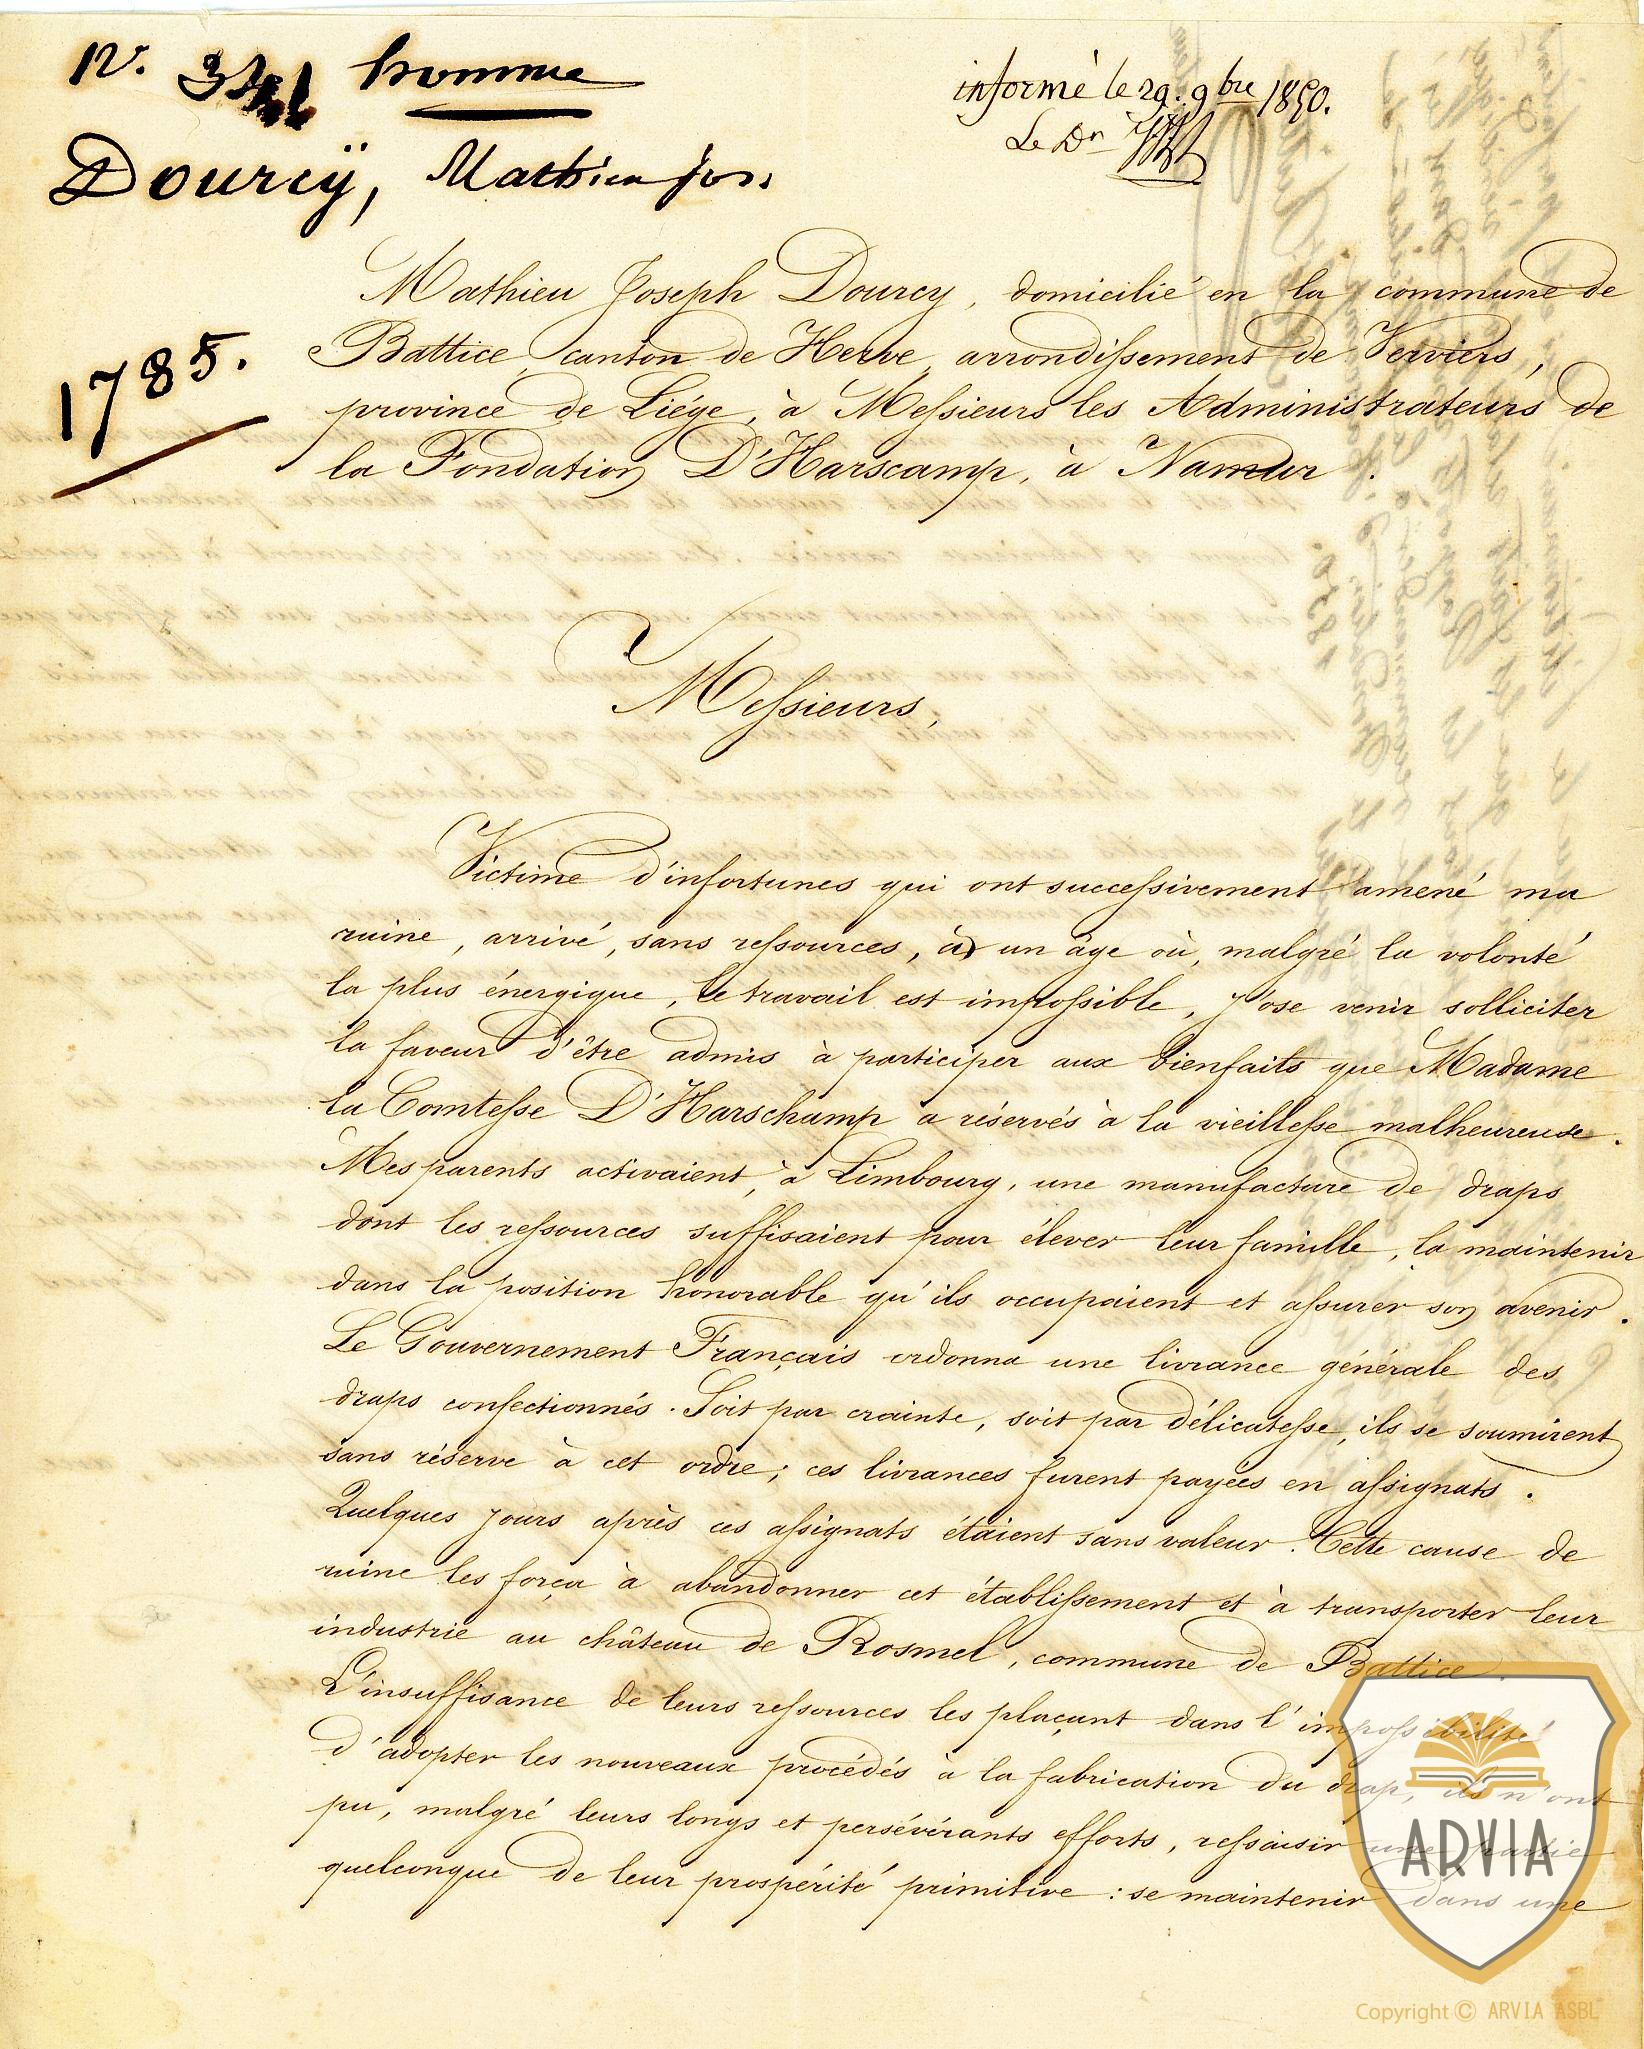 N.º homme
Dourcÿ, Mathieu jos.
informé le 29. 9bre 1850.
Le Dr
1785.
Mathieu Joseph Dourcy, domicilié en la commune de
Battice, canton de Herve, arrondissement de Verviers,
province de Liége, à Messieurs les Administrateurs de
la Fondation D'Harscamp, à Namur.
Messieurs,
Victime d'infortunes qui ont successivement amené ma
ruine, arrivé, sans ressources, à un âge où, malgré la volonté
la plus énergique, le travail est impossible, j'ose venir solliciter
la faveur d'être admis à participer aux bienfaits que Madame
la Comtesse D'Harschamp a réservés à la vieillesse malheureuse.
Mes parents activaient, à Limbourg, une manufacture de draps
dont les ressources suffisaient pour élever leur famille, la maintenir
dans la position honorable qu'ils occupaient et assurer son avenir.
Le Gouvernement Français ordonna une livrance générale des
draps confectionnés. Soit par crainte, soit par délicatesse, ils se soumirent
sans réserve à cet ordre; ces livrances furent payées en assignats.
Quelques jours après ces assignats étaient sans valeur. Cette cause de
ruine les força à abandonner cet établissement et à transporter leur
industrie au château de Rosmel, commune de Battice.
L'insuffisance de leurs ressources les plaçant dans l'impossibilité
d'adopter les nouveaux procédés à la fabrication du drap, ils n'ont
pu, malgré leurs longs et persévérants efforts, ressaisir une partie
quelconque de leur prospérité primitive : se maintenir dans une
ARVIA
Copyright © ARVIA ASBL